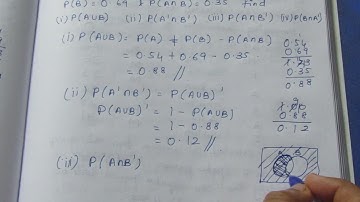 P(B) = 0.69 & P(A∩B) = 0.35 find
(i) P(A∪B) (ii) P(A'∩B') (iii) P(A∩B') (iv) P(B∩A')
(i) P(A∪B) = P(A) + P(B) - P(A∩B)
= 0.54 + 0.69 - 0.35
= 0.88 //
0.54
0.69
1.23
0.35
0.88
(ii) P(A'∩B') = P(A∪B)'
P(A∪B)' = 1 - P(A∪B)
= 1 - 0.88
= 0.12 //
1.00
0.88
0.12
(iii) P(A∩B')